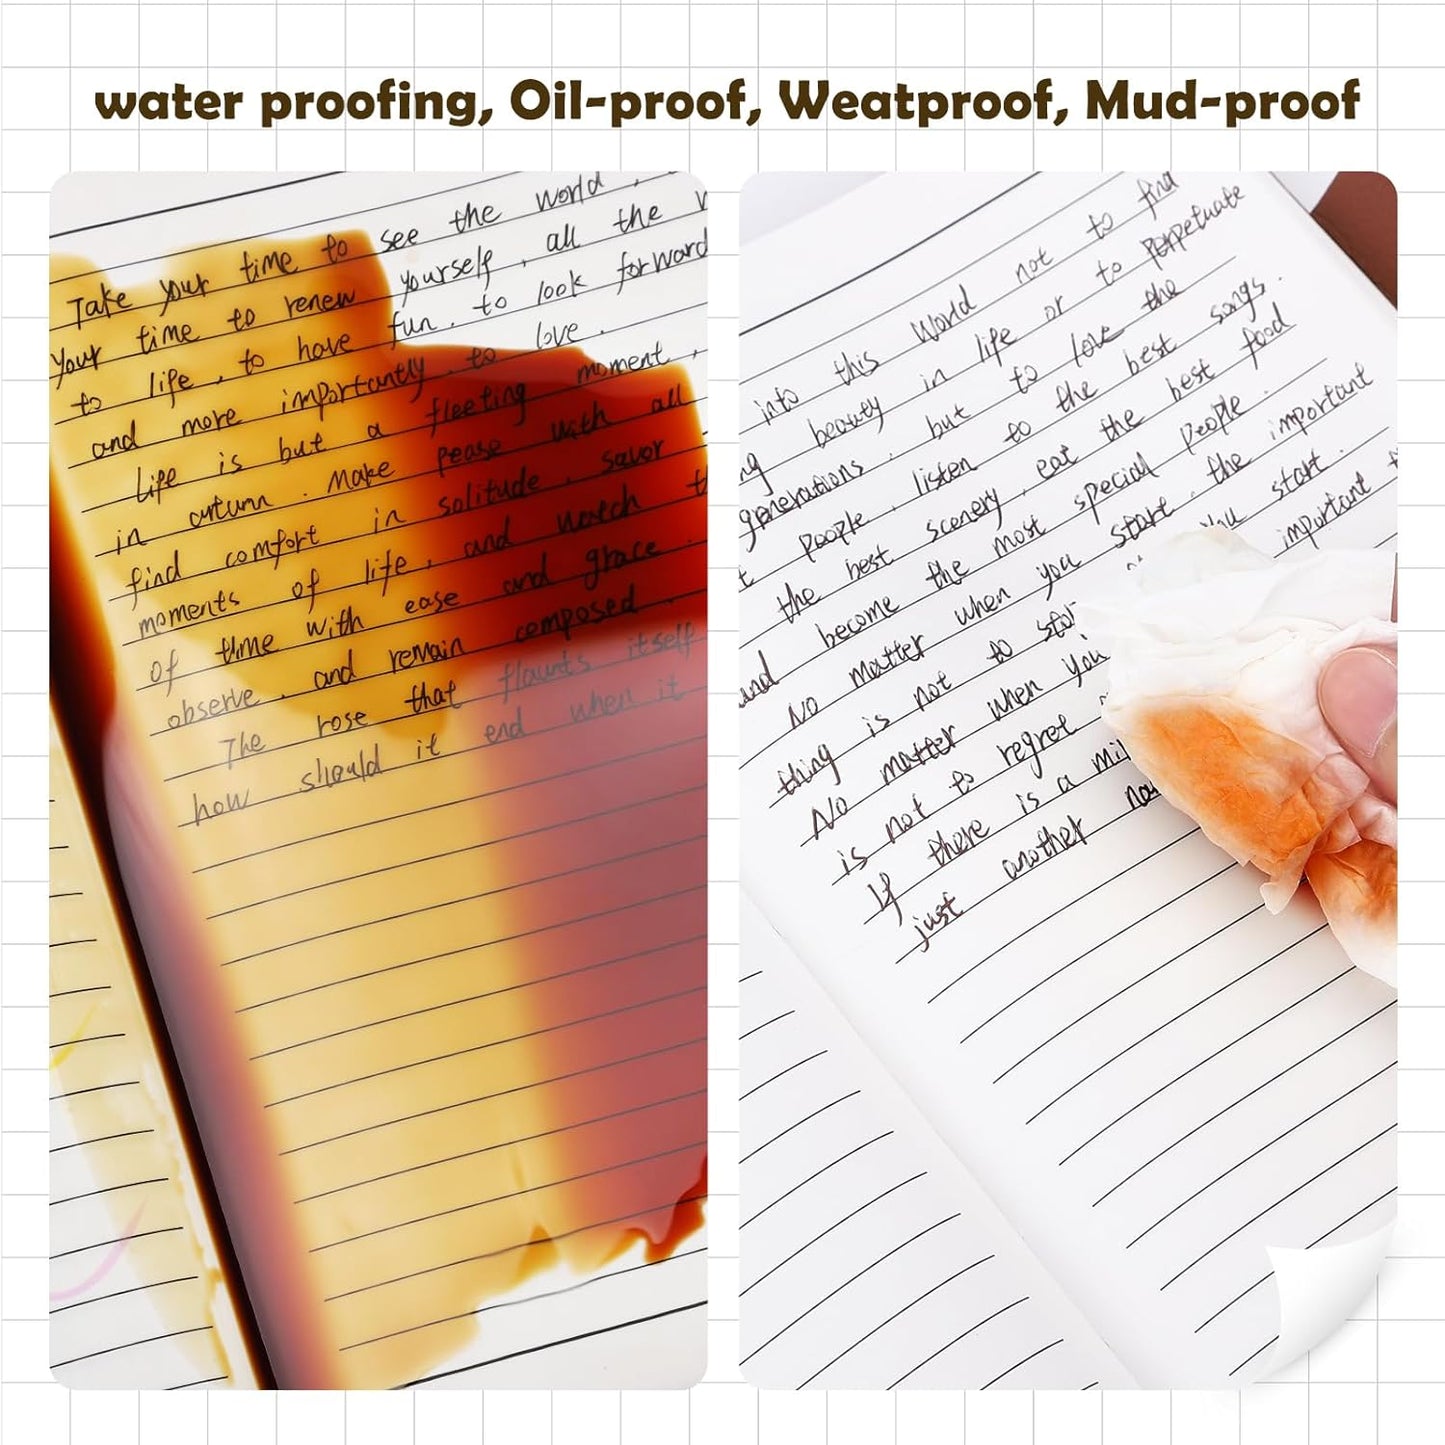 water proofing, Oil-proof, Weatproof, Mud-proof
Take your time to see the world ,
your time to renew yourself , all the
to life , to have fun . to look forward
and more importantly . to love .
Life is but a fleeting moment ,
in autumn . Make pease with all
find comfort in solitude , savor
moments of life , and watch
of time with ease and grace .
observe , and remain composed .
The rose that flaunts itself
how should it end when it
into this World not to find
beauty in life or to perpetuate
generations . but to love the
people , listen to the best songs .
the best scenery , eat the best food
and become the most special people .
No matter when you start , the important
thing is not to you start .
No matter when you important
is not to regret
If there is a
just another